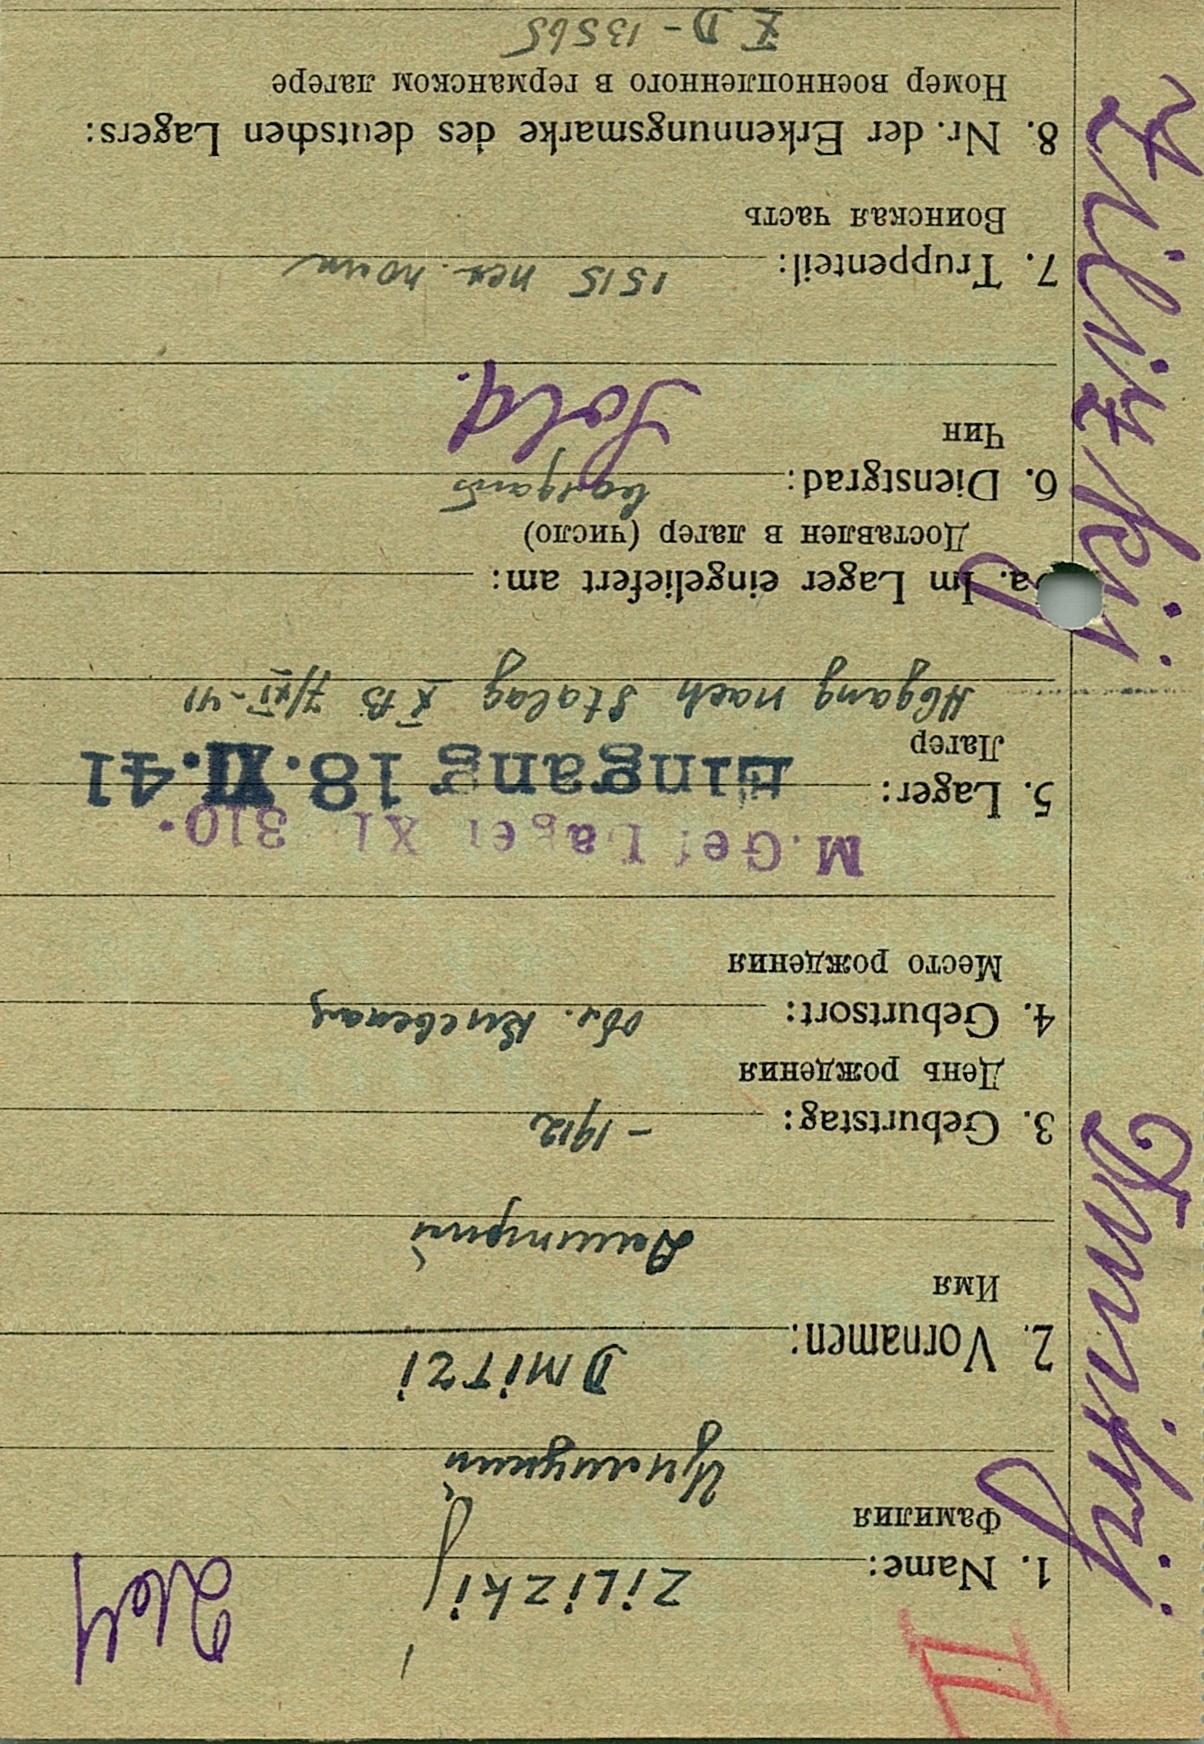 II
1. Name: ZiLizkij
Фамилия
204
2. Vornamen: DMiTZi
Имя
Дмитрий
3. Geburtstag: - 1912
День рождения
4. Geburtsort: обл.
Место рождения
M.Gef Lager XI 310.
5. Lager: Eingang 18.XI.41
Лагер
Abgang nach Stalag X B 7/XI-41
5a. Im Lager eingeliefert am:
Доставлен в лагер (число)
6. Dienstgrad:
Чин Sold.
7. Truppenteil: 1515
Воинская часть
8. Nr. der Erkennungsmarke des deutschen Lagers:
Номер военнопленного в германском лагере
X D - 13565
Zilizkij
Dmitrij